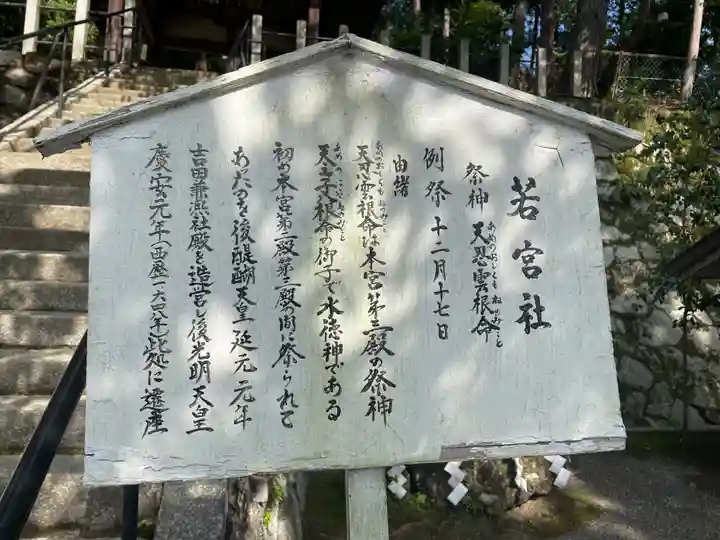 若宮社
祭神 天忍雲根命
あめのおしくもねのみこと
例祭 十二月十七日
由緒
天忍雲根命は本宮第三殿の祭神
あめのおしくもねのみこと
天之子八根命の御子で水徳神である
初め本宮第二殿第三殿の間に祭られて
あったのを後醍醐天皇延元元年
吉田兼熙社殿を造営し後光明天皇
慶安元年(西歴一六四八年)此処に遷座